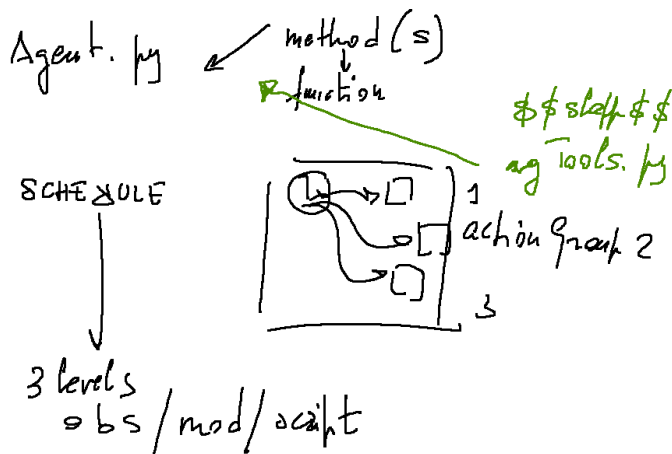 Agent.py
method(s)
function
$$ staff $$
ag Tools.py
SCHEDULE
1
action Group 2
3
3 levels
obs/mod/script